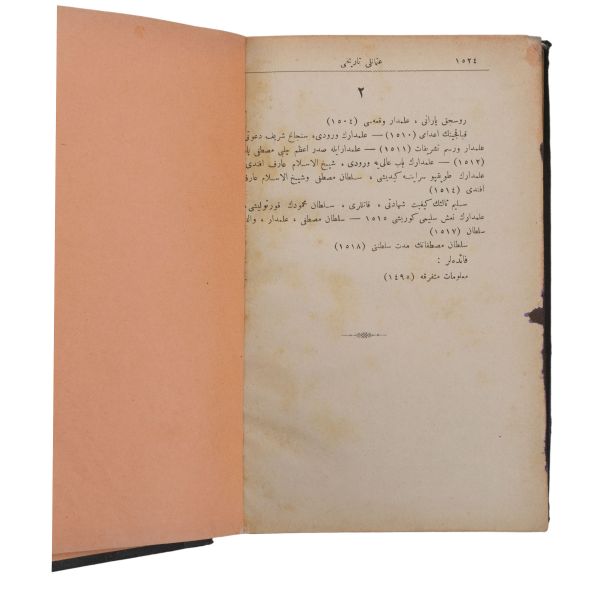 ١٥٢٤ عثمانلی تاریخی
٢
روسجق یارانی ، علمدار وقعه‌سی (١٥٠٤)
قباقجینك اعدامی (١٥١٠) — علمدارك ورودی، سنجاغ شریف دعوتی
علمدار ورسم تشریفات (١٥١١) — علمدارایله صدر اعظم چلبی مصطفی
(١٥١٢) — علمدارك باب عالی‌یه ورودی ، شیخ‌الاسلام عارف افندی
علمدارك طوپقپو سراینه کیدیشی ، سلطان مصطفی وشیخ‌الاسلام عارف
افندی (١٥١٤)
سلیم ثالثك کیفیت شهادتی ، قاتللری ، سلطان محمودك قورتولیشی
علمدارك نعش سلیمی کوریشی ١٥١٥ — سلطان مصطفی ، علمدار ،
سلطان (١٥١٧)
سلطان مصطفانك مدت سلطنتی (١٥١٨)
فائده‌لر :
معلومات متفرقه (١٤٩٥)